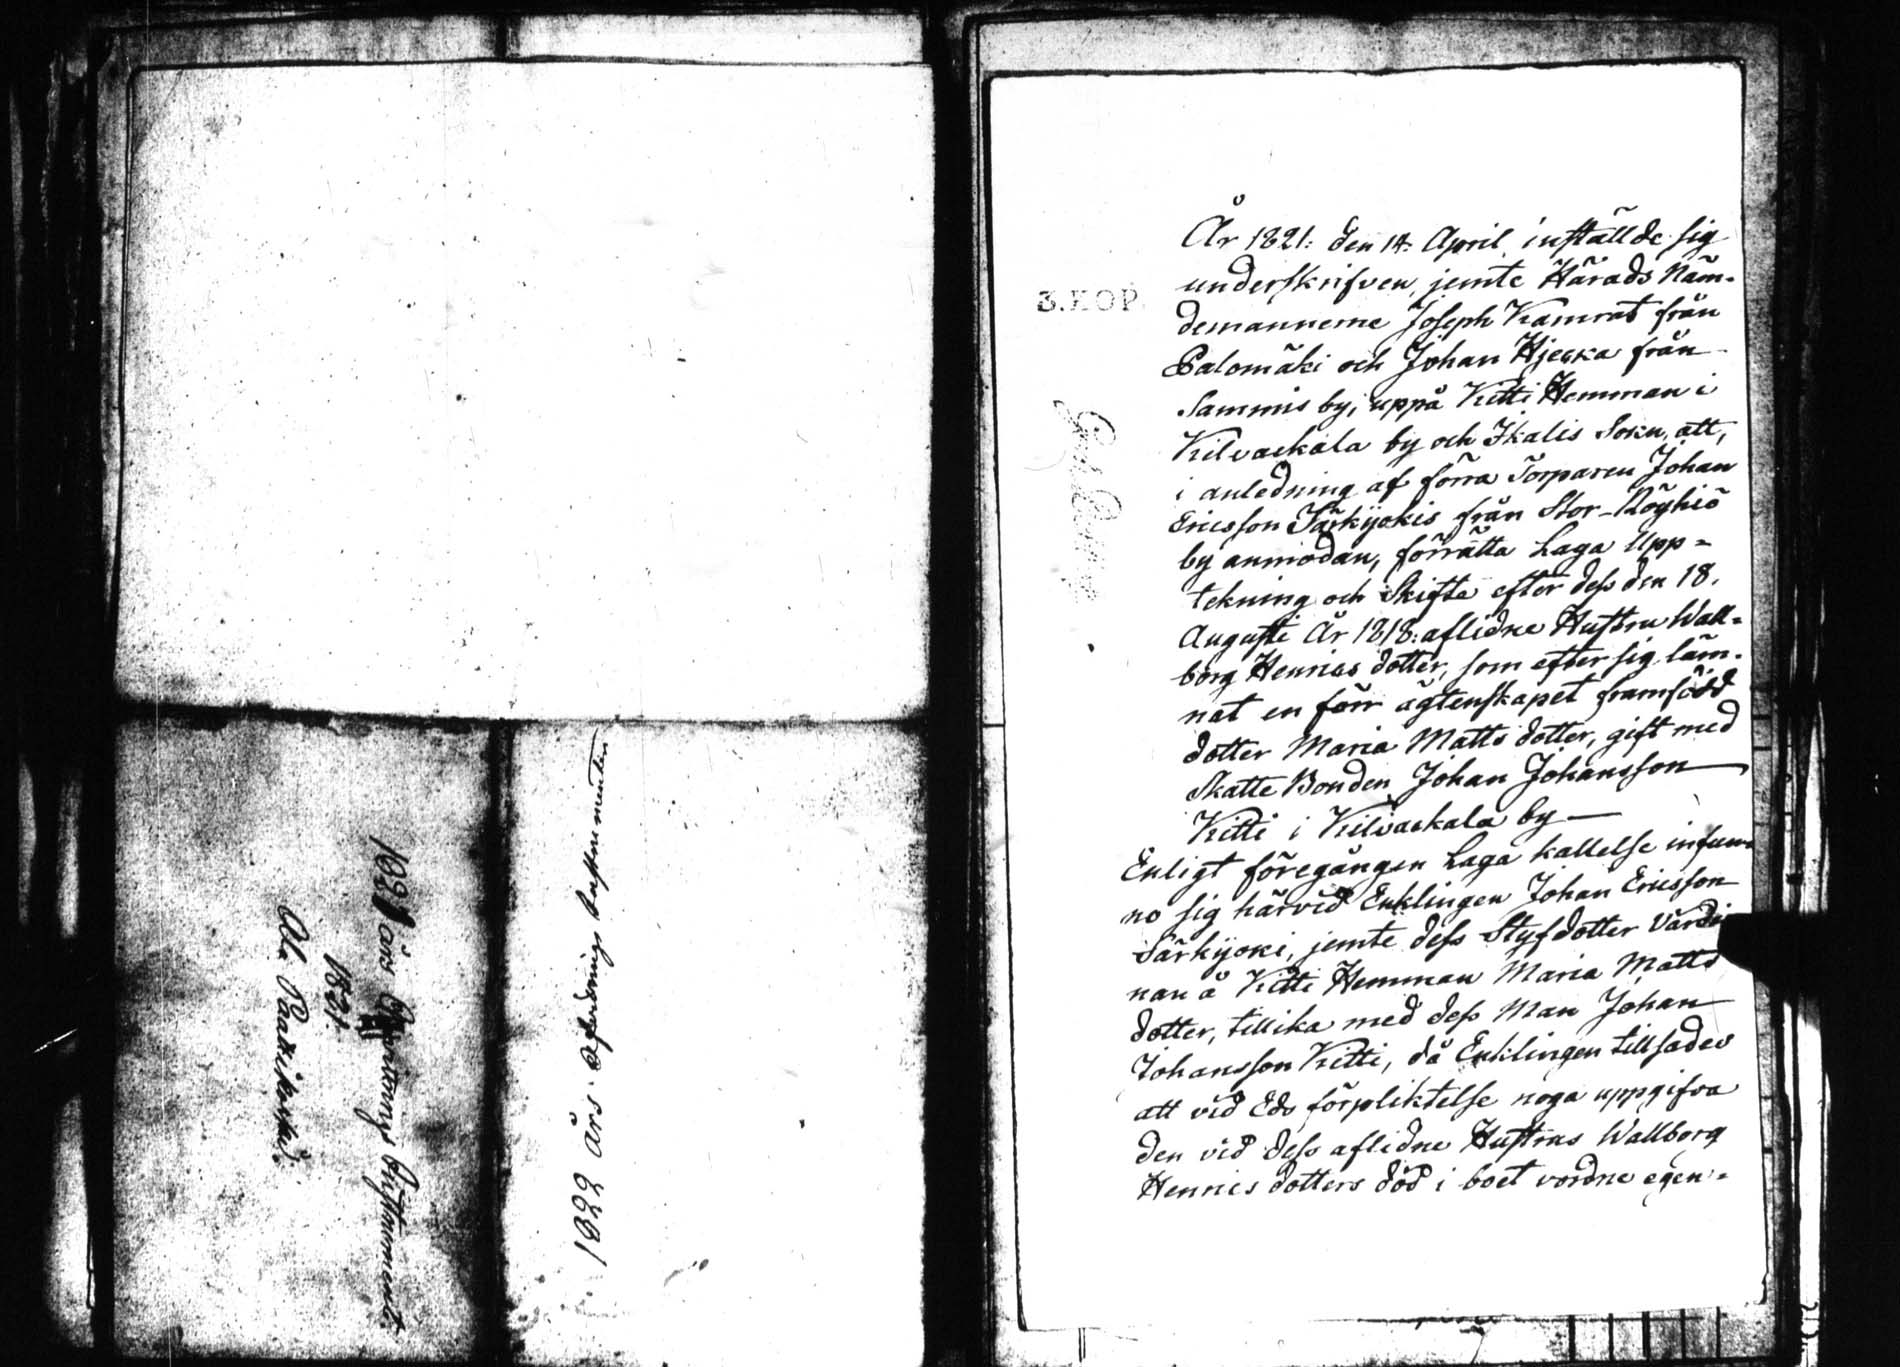 1821 års Afvittrings Instrument
1821.
1822 års Afvittrings Instrumenter
3. KOP.
År 1821. den 14. April, inställde sig
underskrifven, jemte Härads Näm-
demannerne Joseph Kamrat från
Palomäki och Johan Hjerka från
Sammis by, uppå Kitti Hemman i
Kilvackala by och Ikalis Sokn, att,
i anledning af förra Torparen Johan
Ericsson Särkijokis från Stor-Röyhiö
by anmodan, förrätta Laga Upp-
tekning och Skifte efter dess den 18.
Augusti År 1818. aflidne Hustru Wall-
borg Henrics dotter, som efter sig läm-
nat en förr ägtenskapet framfödd
dotter Maria Matts dotter, gift med
Skatte Bonden Johan Johansson
Kitti i Kilvackala by —
Enligt föregången Laga kallelse infun-
no sig härvid Enklingen Johan Ericsson
Särkijoki, jemte dess Styfdotter Värdi
nan å Kitti Hemman Maria Matts
dotter, tillika med dess Man Johan
Johansson Kitti, då Enklingen tillsades
att vid Eds förpliktelse noga uppgifva
den vid dess aflidne Hustrus Wallborg
Henrics dotters död i boet vordne egen-